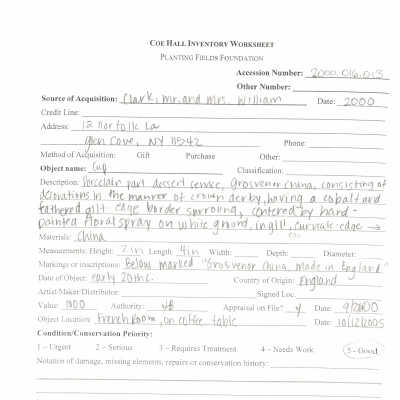 COE HALL INVENTORY WORKSHEET
PLANTING FIELDS FOUNDATION
Accession Number: 2000.016.013
Other Number:
Source of Acquisition: Clark, Mr. and Mrs. William Date: 2000
Credit Line:
Address: 12 Norfolk La
Glen Cove, NY 11542 Phone:
Method of Acquisition: Gift Purchase Other:
Object name: Cup Classification:
Description: Porcelain part dessert service, Grosvenor china, consisting of
decorations in the manner of crown derby, having a cobalt and
fathered gilt edge border surroing, centered by hand-
painted floral spray on white ground, in gilt, curvate edge →
Materials: China
Measurements: Height: 2 in Length: 4 in Width: Depth: Diameter:
Markings or inscriptions: Below marked "Grosvenor China, made in England"
Date of Object: early 20th c. Country of Origin: England
Artist/Maker/Distributor: Signed Loc.
Value: Authority: Appraisal on File? y Date: 9/2000
Object Location: French Room, on coffee table Date: 10/12/2005
Condition/Conservation Priority:
1 – Urgent 2 – Serious 3 – Requires Treatment 4 – Needs Work 5 – Good
Notation of damage, missing elements, repairs or conservation history: